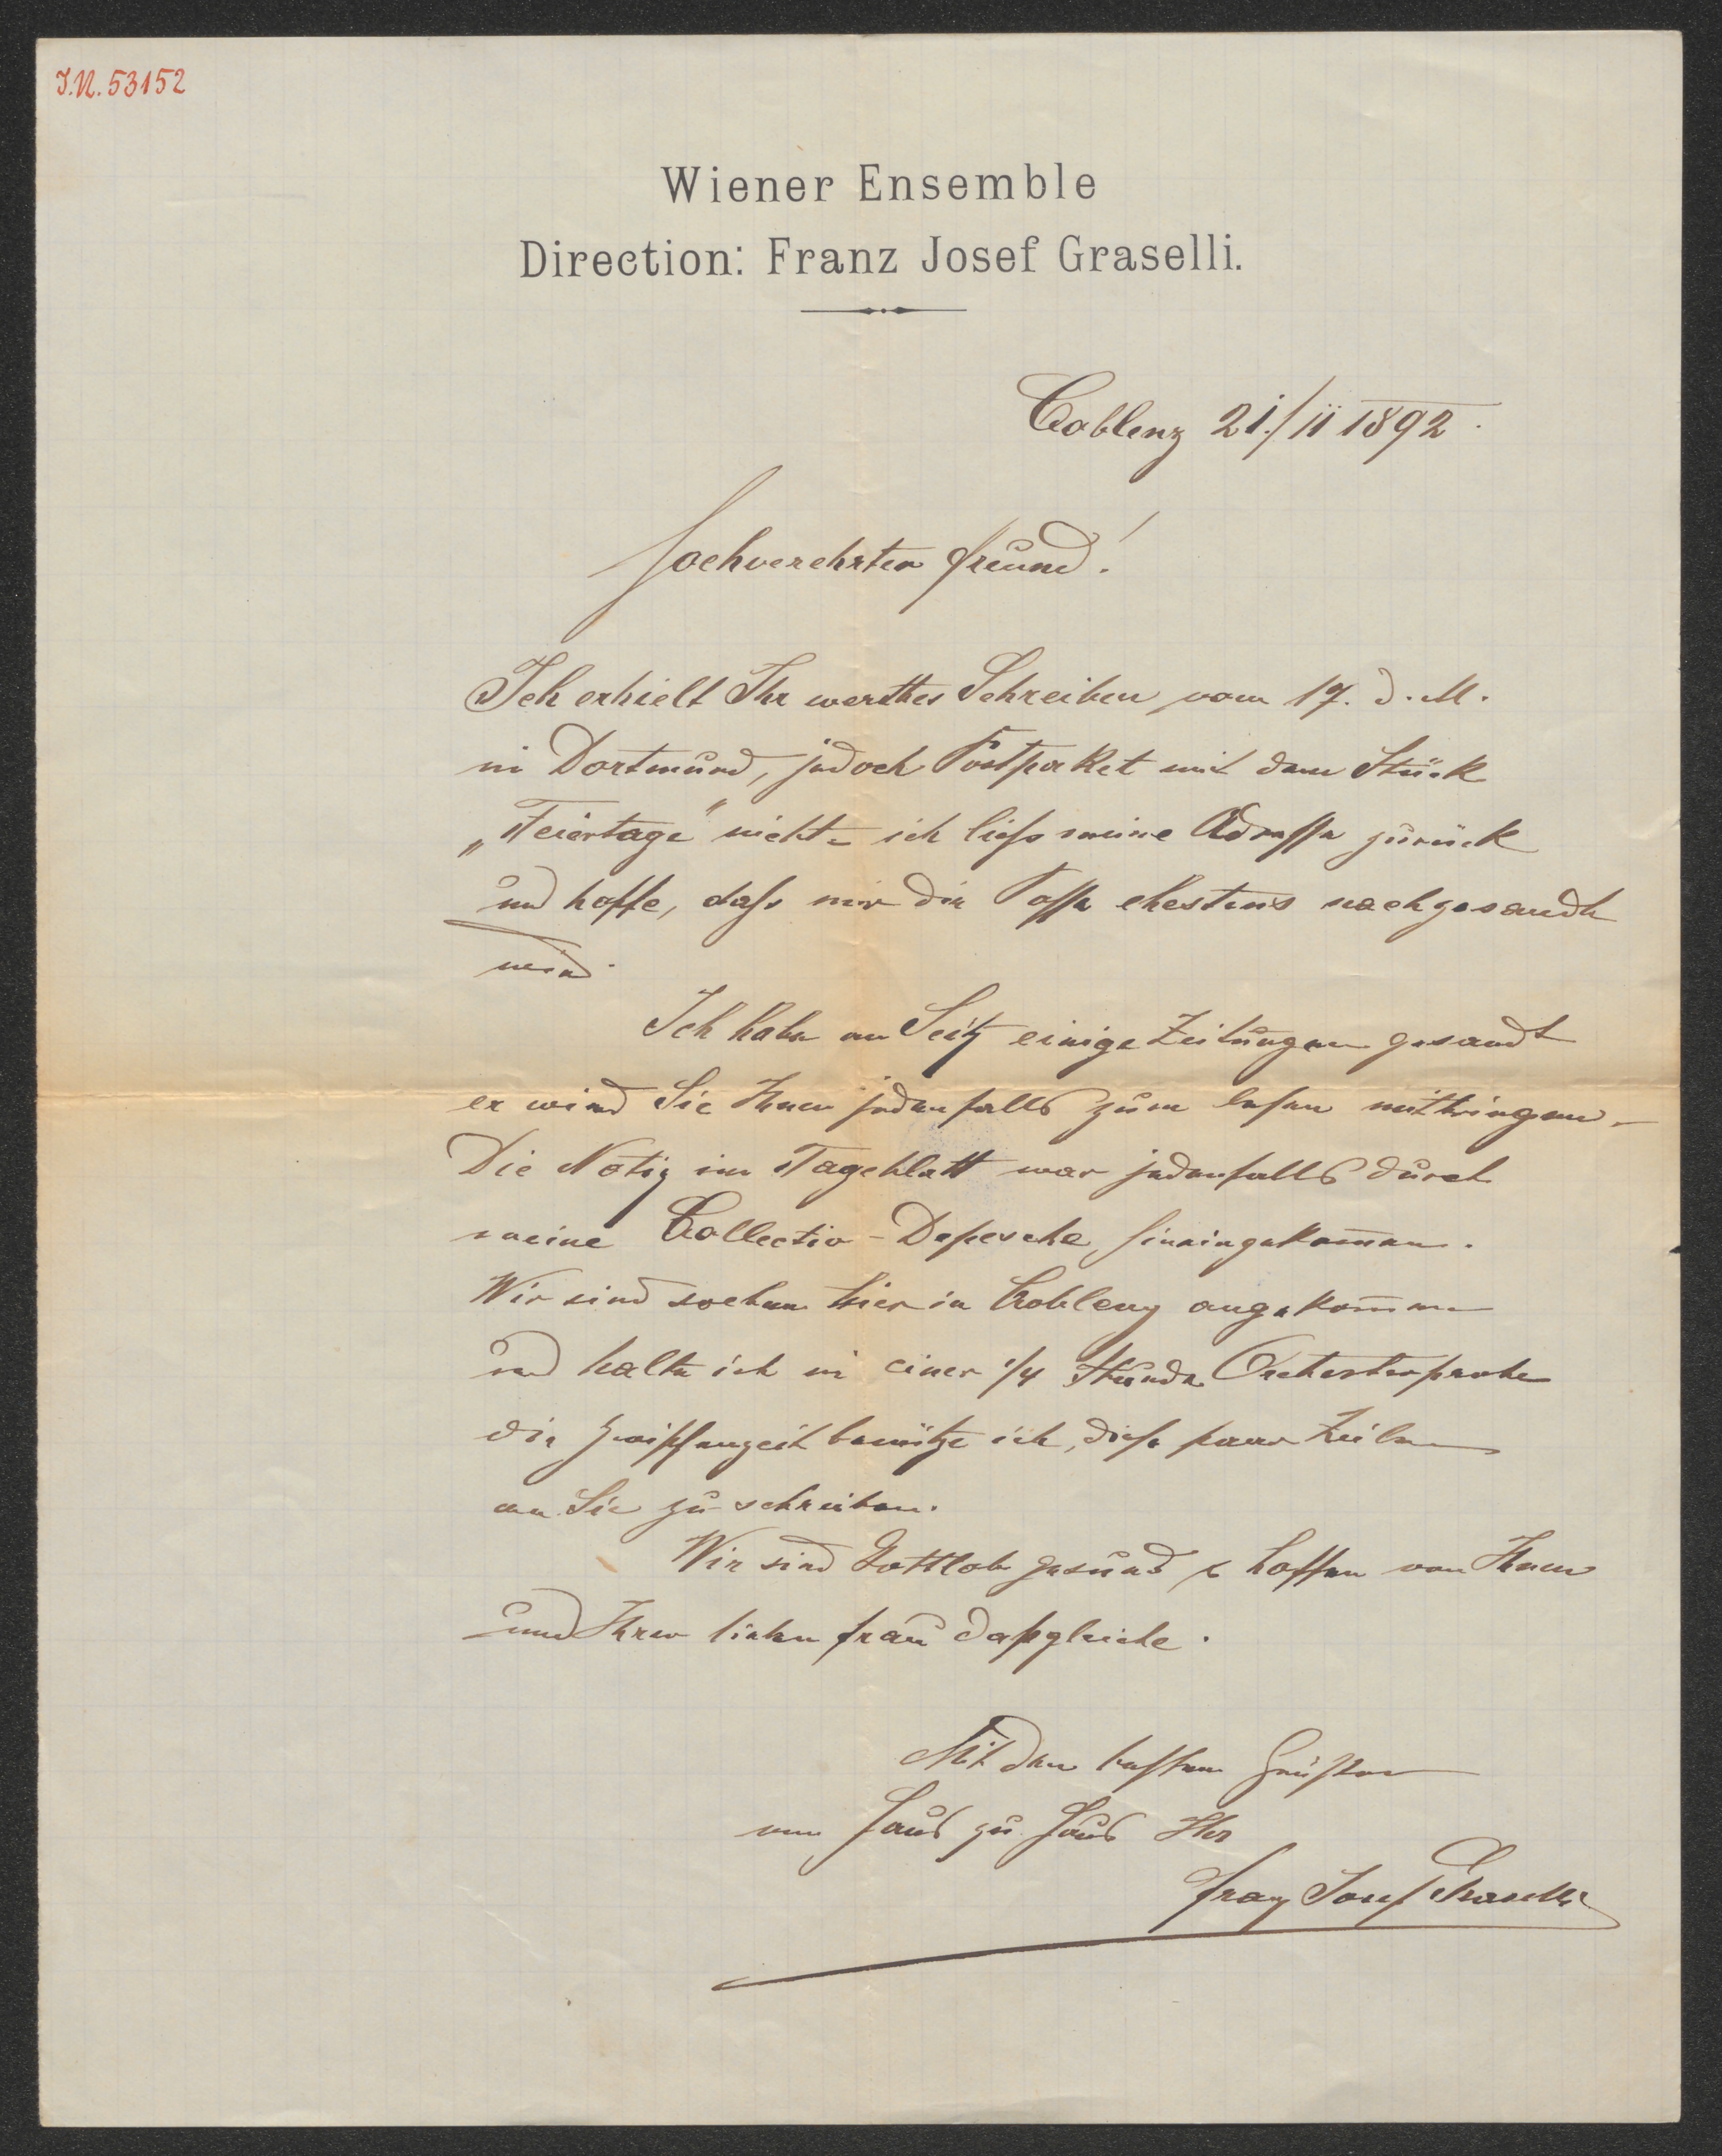 J.N. 53152
Wiener Ensemble
Direction: Franz Josef Graselli.
Coblenz 21./ii 1892.
Hochverehrter Freund!
Ich erhielt Ihr werthes Schreiben vom 17. d. M.
in Dortmund, jedoch Postpaket mit dem Stück
„Feiertage" nicht – ich liess meine Adresse zurück
und hoffe, dass mir die Posse ehestens nachgesandt
wird.
Ich habe an Seitz einige Zeitungen gesandt
er wird Sie Ihnen jedenfalls zum lesen mitbringen. –
Die Notiz im Tageblatt war jedenfalls durch
meine Collectiv-Depesche hineingekom̄en.
Wir sind soeben hier in Coblenz angekom̄en
und halte ich in einer 1/4 Stunde Orchesterprobe
die Zwischenzeit benütze ich, diese paar Zeilen
an Sie zu schreiben.
Wir sind Gottlob gesund & hoffen von Ihnen
und Ihrer lieben Frau dasgleiche.
Mit den besten Grüssen
von Haus zu Haus Ihr
Franz Josef Graselli